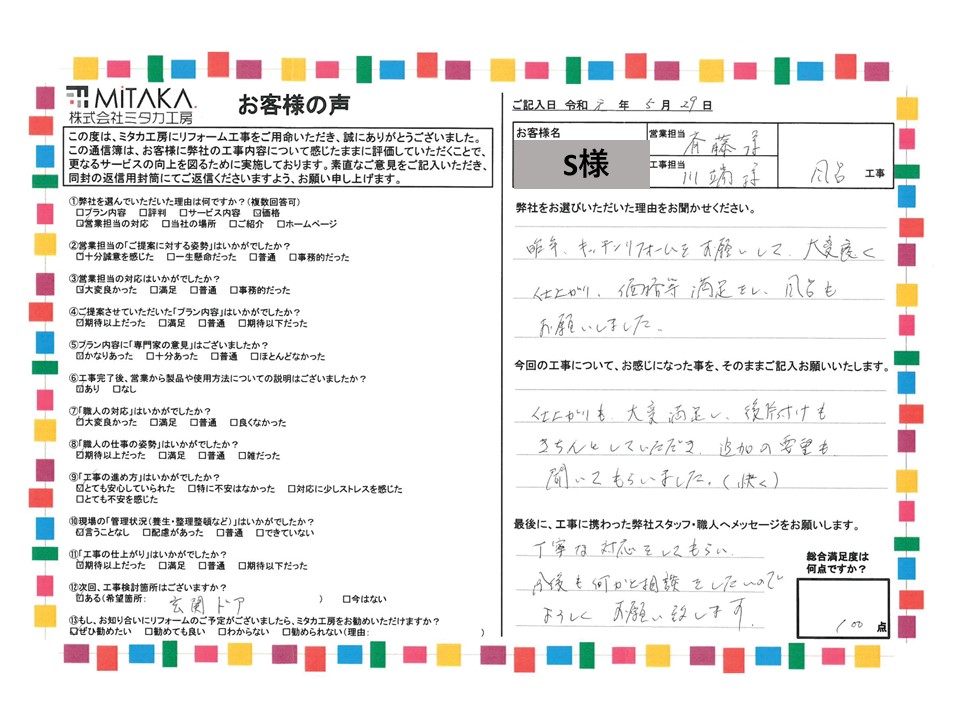 MiTAKA
株式会社ミタカ工房
お客様の声
この度は、ミタカ工房にリフォーム工事をご用命いただき、誠にありがとうございました。
この通信簿は、お客様に弊社の工事内容について感じたままに評価していただくことで、
更なるサービスの向上を図るために実施しております。素直なご意見をご記入いただき、
同封の返信用封筒にてご返信くださいますよう、お願い申し上げます。
①弊社を選んでいただいた理由は何ですか?(複数回答可)
□プラン内容 □評判 □サービス内容 ☑価格
☑営業担当の対応 □当社の場所 □ご紹介 □ホームページ
②営業担当の「ご提案に対する姿勢」はいかがでしたか?
☑十分誠意を感じた □一生懸命だった □普通 □事務的だった
③営業担当の対応はいかがでしたか?
☑大変良かった □満足 □普通 □事務的だった
④ご提案させていただいた「プラン内容」はいかがでしたか?
☑期待以上だった □満足 □普通 □期待以下だった
⑤プラン内容に「専門家の意見」はございましたか?
☑かなりあった □十分あった □普通 □ほとんどなかった
⑥工事完了後、営業から製品や使用方法についての説明はございましたか?
☑あり □なし
⑦「職人の対応」はいかがでしたか?
☑大変良かった □満足 □普通 □良くなかった
⑧「職人の仕事の姿勢」はいかがでしたか?
☑期待以上だった □満足 □普通 □雑だった
⑨「工事の進め方」はいかがでしたか?
☑とても安心していられた □特に不安はなかった □対応に少しストレスを感じた
□とても不安を感じた
⑩現場の「管理状況(養生・整理整頓など)」はいかがでしたか?
☑言うことなし □配慮があった □普通 □できていない
⑪「工事の仕上がり」はいかがでしたか?
☑期待以上だった □満足 □普通 □期待以下だった
⑫次回、工事検討箇所はございますか?
☑ある(希望箇所: 玄関ドア ) □今はない
⑬もし、お知り合いにリフォームのご予定がございましたら、ミタカ工房をお勧めいただけますか?
☑ぜひ勧めたい □勧めても良い □わからない □勧められない(理由: )
ご記入日 令和 元 年 5 月 29 日
お客様名
S様
営業担当 斉藤様
工事担当 川端様
風呂 工事
弊社をお選びいただいた理由をお聞かせください。
昨年、キッチンリフォームをお願いして、大変良く
仕上がり、価格等満足をし、風呂も
お願いしました。
今回の工事について、お感じになった事を、そのままご記入お願いいたします。
仕上がりも、大変満足し、後片付けも
きちんとしていただき、追加の要望も
聞いてもらいました。(快く)
最後に、工事に携わった弊社スタッフ・職人へメッセージをお願いします。
丁寧な対応をしてもらい、
今後も何かと相談をしたいので
よろしくお願い致します。
総合満足度は
何点ですか?
100 点